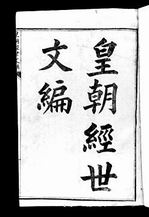 皇朝經世
文編